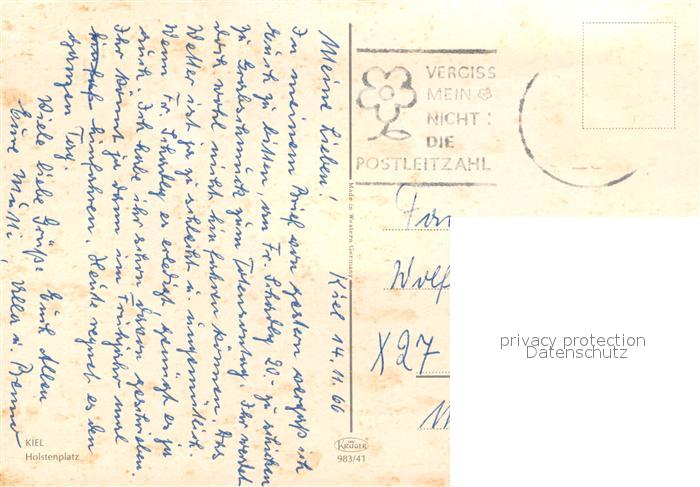 Kiel 14.11.66
Meine Lieben!
In meinem Brief von gestern vergaß ich
Euch zu bitten, an Fr. Schädly 20.- zu schicken
zu Grabschmuck zum Totensonntag. Ihr werdet
doch wohl nicht hinfahren können. Das
Wetter ist ja zu schlecht u. ungemütlich.
Wenn Fr. Schädly es erledigt, genügt es ja
auch. Ich habe ihr schon davon geschrieben.
Ihr könnt ja dann im Frühjahr mal
hinfahren. Heute regnet es den
ganzen Tag.
Viele liebe Grüße Euch Allen
Eure Mutti,
KIEL
Holstenplatz
Made in Western Germany
KRÜGER
983/41
VERGISS
MEIN
NICHT!
DIE
POSTLEITZAHL
Fam
Wolf
X27
privacy protection
Datenschutz